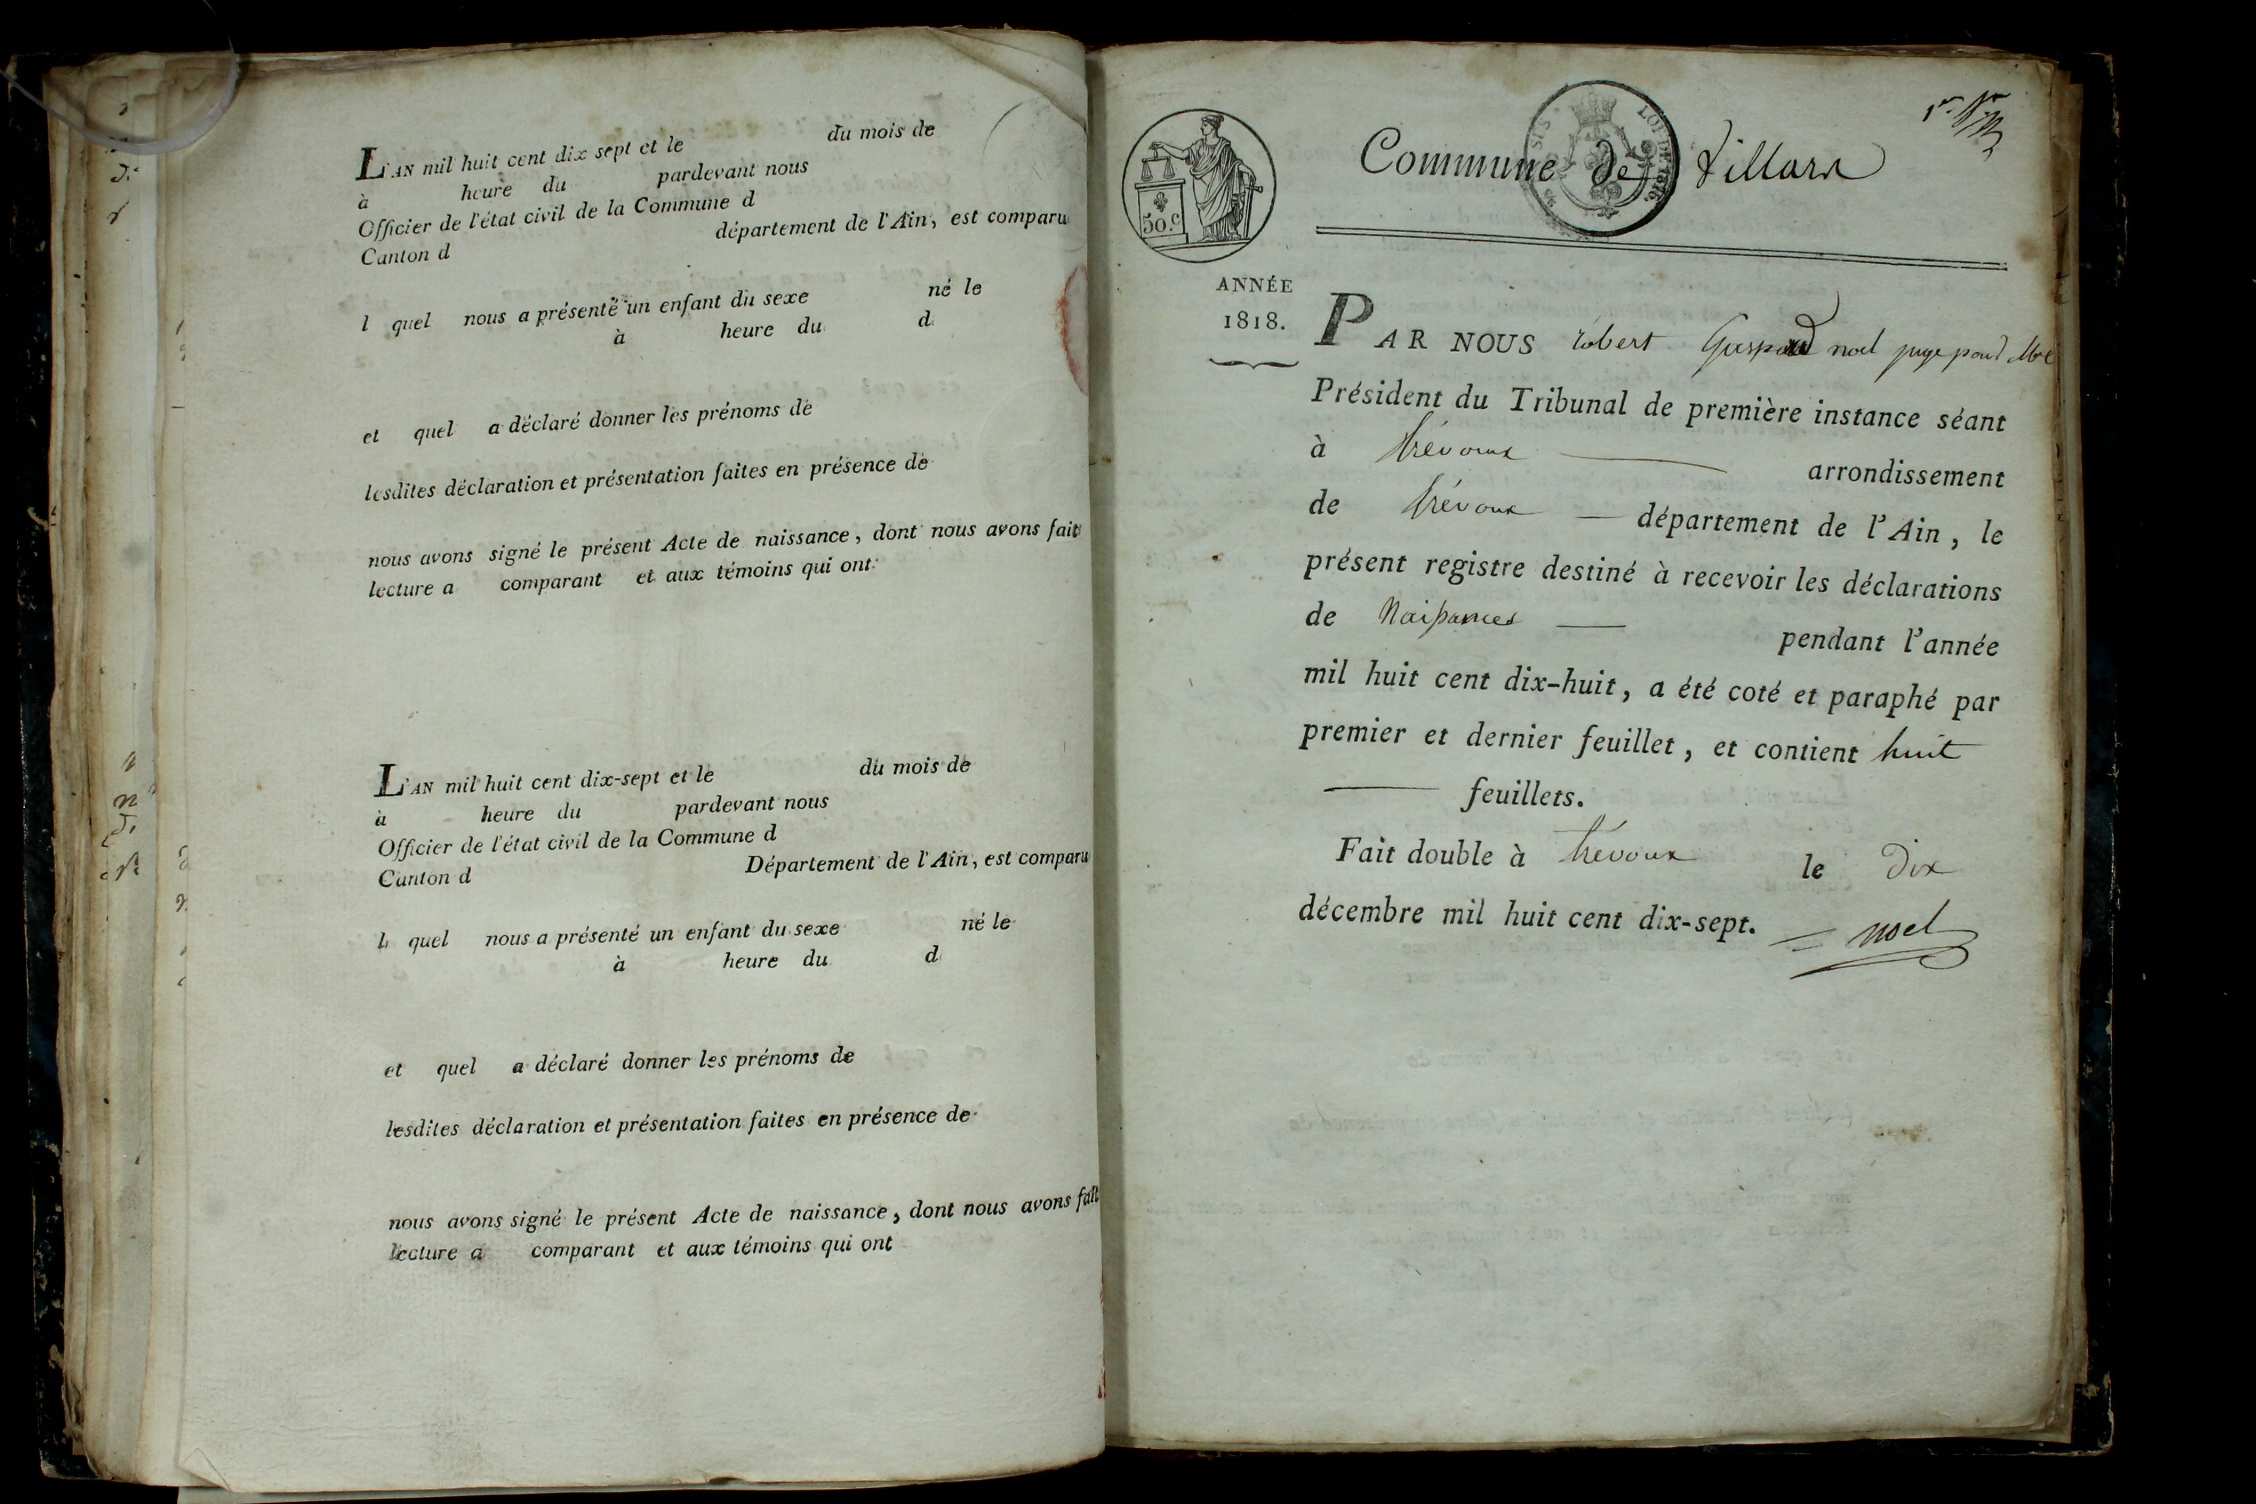 L'AN mil huit cent dix sept et le du mois de
à heure du pardevant nous
Officier de l'état civil de la Commune d
Canton d département de l'Ain, est comparu
l quel nous a présenté un enfant du sexe né le
à heure du d
et quel a déclaré donner les prénoms de
lesdites déclaration et présentation faites en présence de
nous avons signé le présent Acte de naissance, dont nous avons fait
lecture a comparant et aux témoins qui ont
L'AN mil huit cent dix-sept et le du mois de
à heure du pardevant nous
Officier de l'état civil de la Commune d
Canton d Département de l'Ain, est comparu
l quel nous a présenté un enfant du sexe né le
à heure du d
et quel a déclaré donner les prénoms de
lesdites déclaration et présentation faites en présence de
nous avons signé le présent Acte de naissance, dont nous avons fait
lecture a comparant et aux témoins qui ont
50.c
LOI DE 1816.
Commune de Villars
ANNÉE
1818.
PAR NOUS robert Gaspard noel juge pour
Président du Tribunal de première instance séant
à trévoux — arrondissement
de trévoux — département de l'Ain, le
présent registre destiné à recevoir les déclarations
de Naissances — pendant l'année
mil huit cent dix-huit, a été coté et paraphé par
premier et dernier feuillet, et contient huit
— feuillets.
Fait double à trévoux le dix
décembre mil huit cent dix-sept.
noel